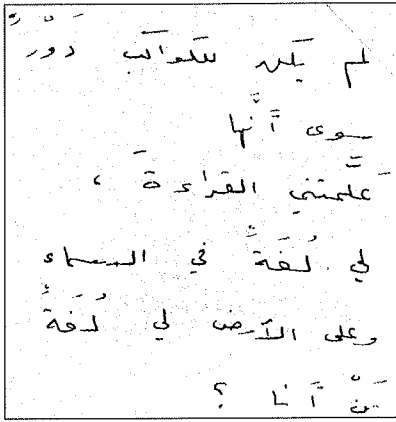 لم يكن للكواكب دَوْرٌ
سوى أَنَّها
عَلَّمتني القراءةَ ،
لي لُغَةٌ في السماء
وعلى الأرض لي لُغَةٌ
مَنْ أَنا ؟